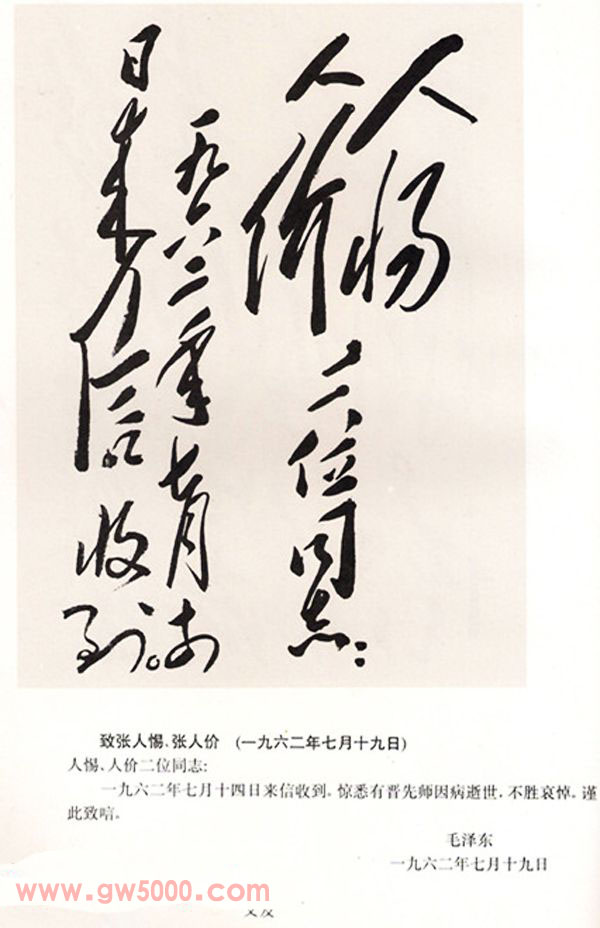 人惕
人价二位同志：
一九六二年七月十四
日来信收到。
致张人惕、张人价 (一九六二年七月十九日)
人惕、人价二位同志：
一九六二年七月十四日来信收到。惊悉有晋先师因病逝世，不胜哀悼。谨
此致唁。
毛泽东
一九六二年七月十九日
www.gw5000.com